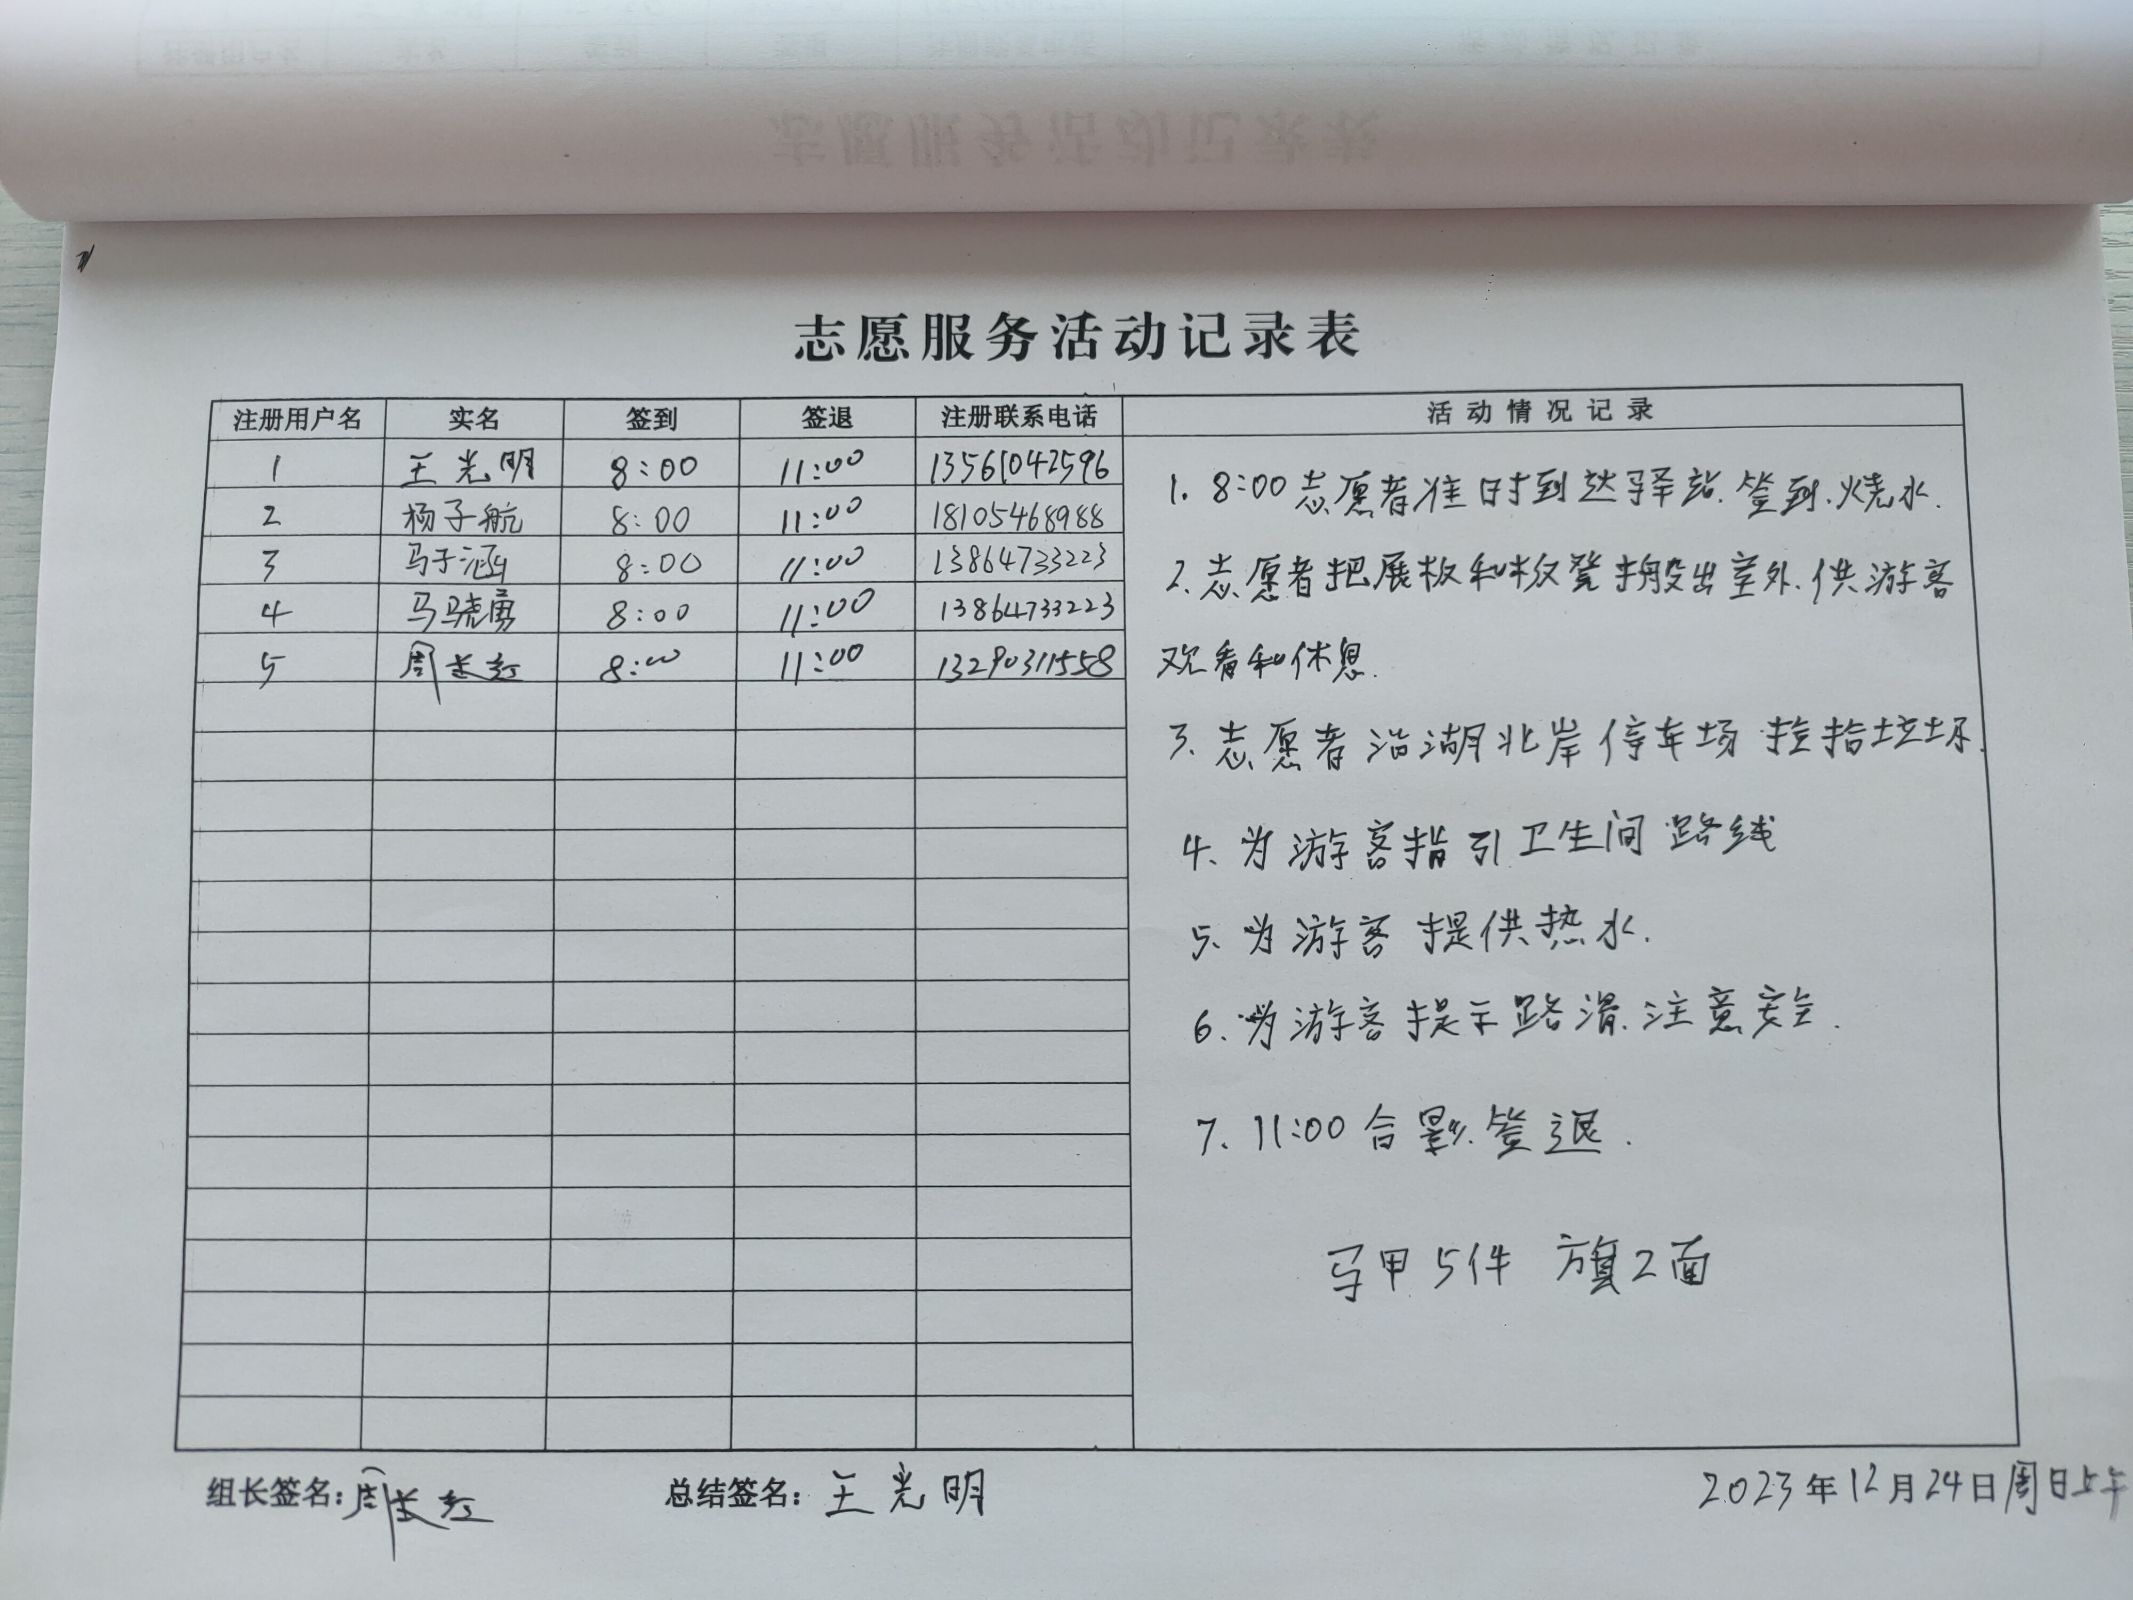 志愿服务活动记录表
注册用户名 实名 签到 签退 注册联系电话 活动情况记录
1 王光明 8:00 11:00 13561042596
2 杨子航 8:00 11:00 18105468988
3 马于涵 8:00 11:00 13864733223
4 马骁勇 8:00 11:00 13864733223
5 周长红 8:00 11:00 13290311558
1. 8:00 志愿者准时到达驿站.签到.烧水.
2.志愿者把展板和板凳搬出室外.供游客
观看和休息.
3.志愿者沿湖北岸停车场捡拾垃圾.
4、为游客指引卫生间路线
5、为游客提供热水.
6.为游客提示路滑.注意安全.
7、11:00合影.签退.
马甲5件 旗2面
组长签名:周长红 总结签名:王光明 2023年12月24日周日上午